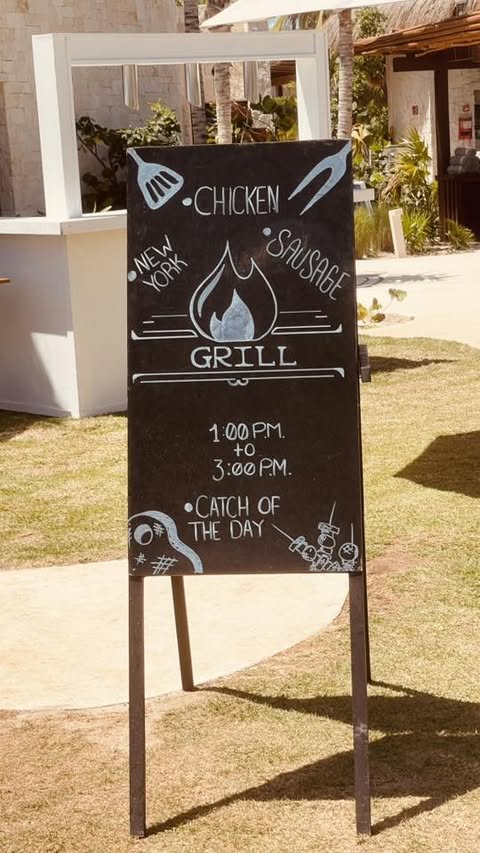 •CHICKEN
•NEW
YORK
•SAUSAGE
GRILL
1:00 P.M.
to
3:00 P.M.
•CATCH OF
THE DAY